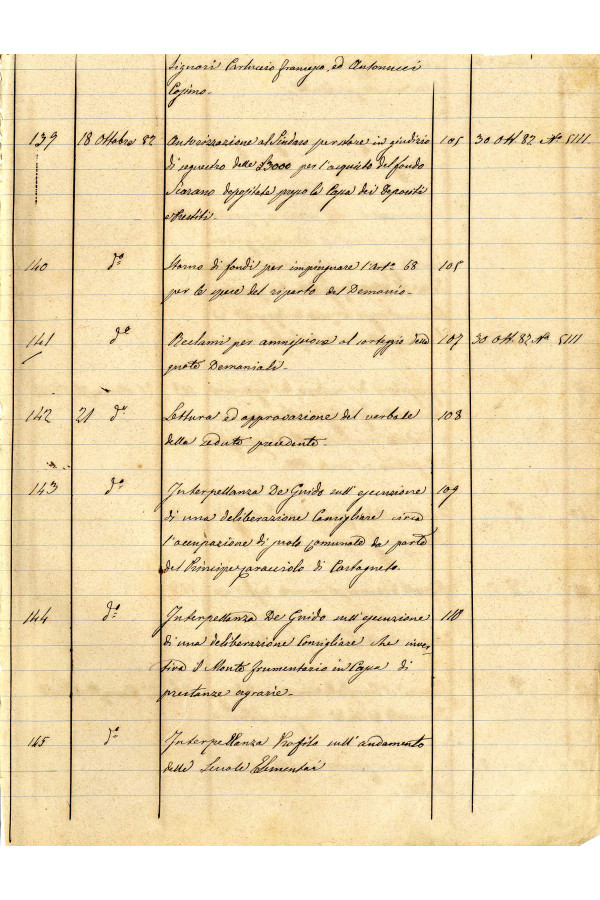 Signori Carluccio Francesco, ed Antonucci
Cosimo.
139 18 Ottobre 82 Autorizzazione al Sindaco per stare in giudizio 105 30 Ott. 82 N° 5111.
di sequestro delle £3000 per l'acquisto del fondo
depositata presso la Cassa dei Depositi
e Prestiti.
140 d° Storno di fondi per impinguare l'Art° 68 105
per le spese del riparto del Demanio.
141 d° Reclami per ammissione al sorteggio delle 107 30 Ott. 82 N° 5111
quote Demaniali.
142 21 d° Lettura ed approvazione del verbale 108
della seduta precedente.
143 d° Interpellanza De Guido sull'esecuzione 109
di una deliberazione Consigliare circa
l'occupazione di suolo comunale da parte
del Principe Caracciolo di Castagneto.
144 d° Interpellanza De Guido sull'esecuzione 110
di una deliberazione Consigliare che inver-
tiva il Monte frumentario in Cassa di
prestanze agrarie.
145 d° Interpellanza Profilo sull'andamento
delle Scuole Elementari